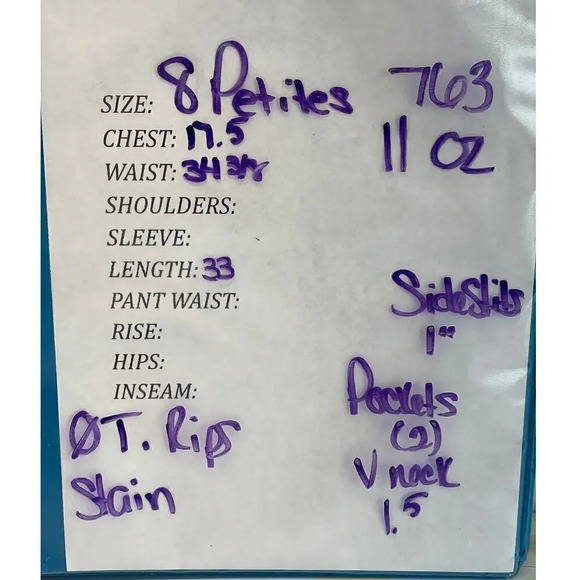 SIZE: 8 Petites 763
CHEST: 17.5
WAIST: 34 3/8 11 OZ
SHOULDERS:
SLEEVE:
LENGTH: 33
PANT WAIST: Side Slits
RISE: 1"
HIPS:
INSEAM: Pockets
ØT. Rips (2)
Stain V neck
1.5